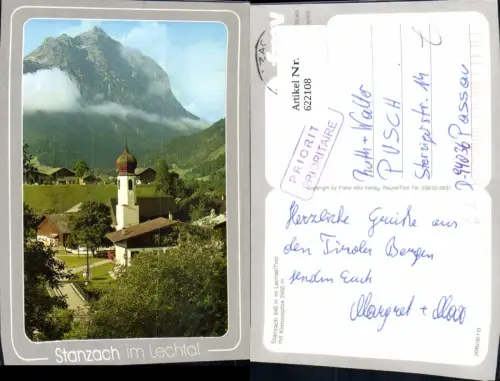 Stanzach im Lechtal
Artikel Nr.
622108
PRIORIT
PRIORITAIRE
Ruth + Walter
PUSCH
14
D-94036 Passau
Copyright by Franz Milz Verlag, Reutte/Tirol
Herzliche Grüße aus
den Tiroler Bergen
senden Euch
Margret + Max
Stanzach 940 m im Lechtal/Tirol
mit Klimmspitze 2465 m